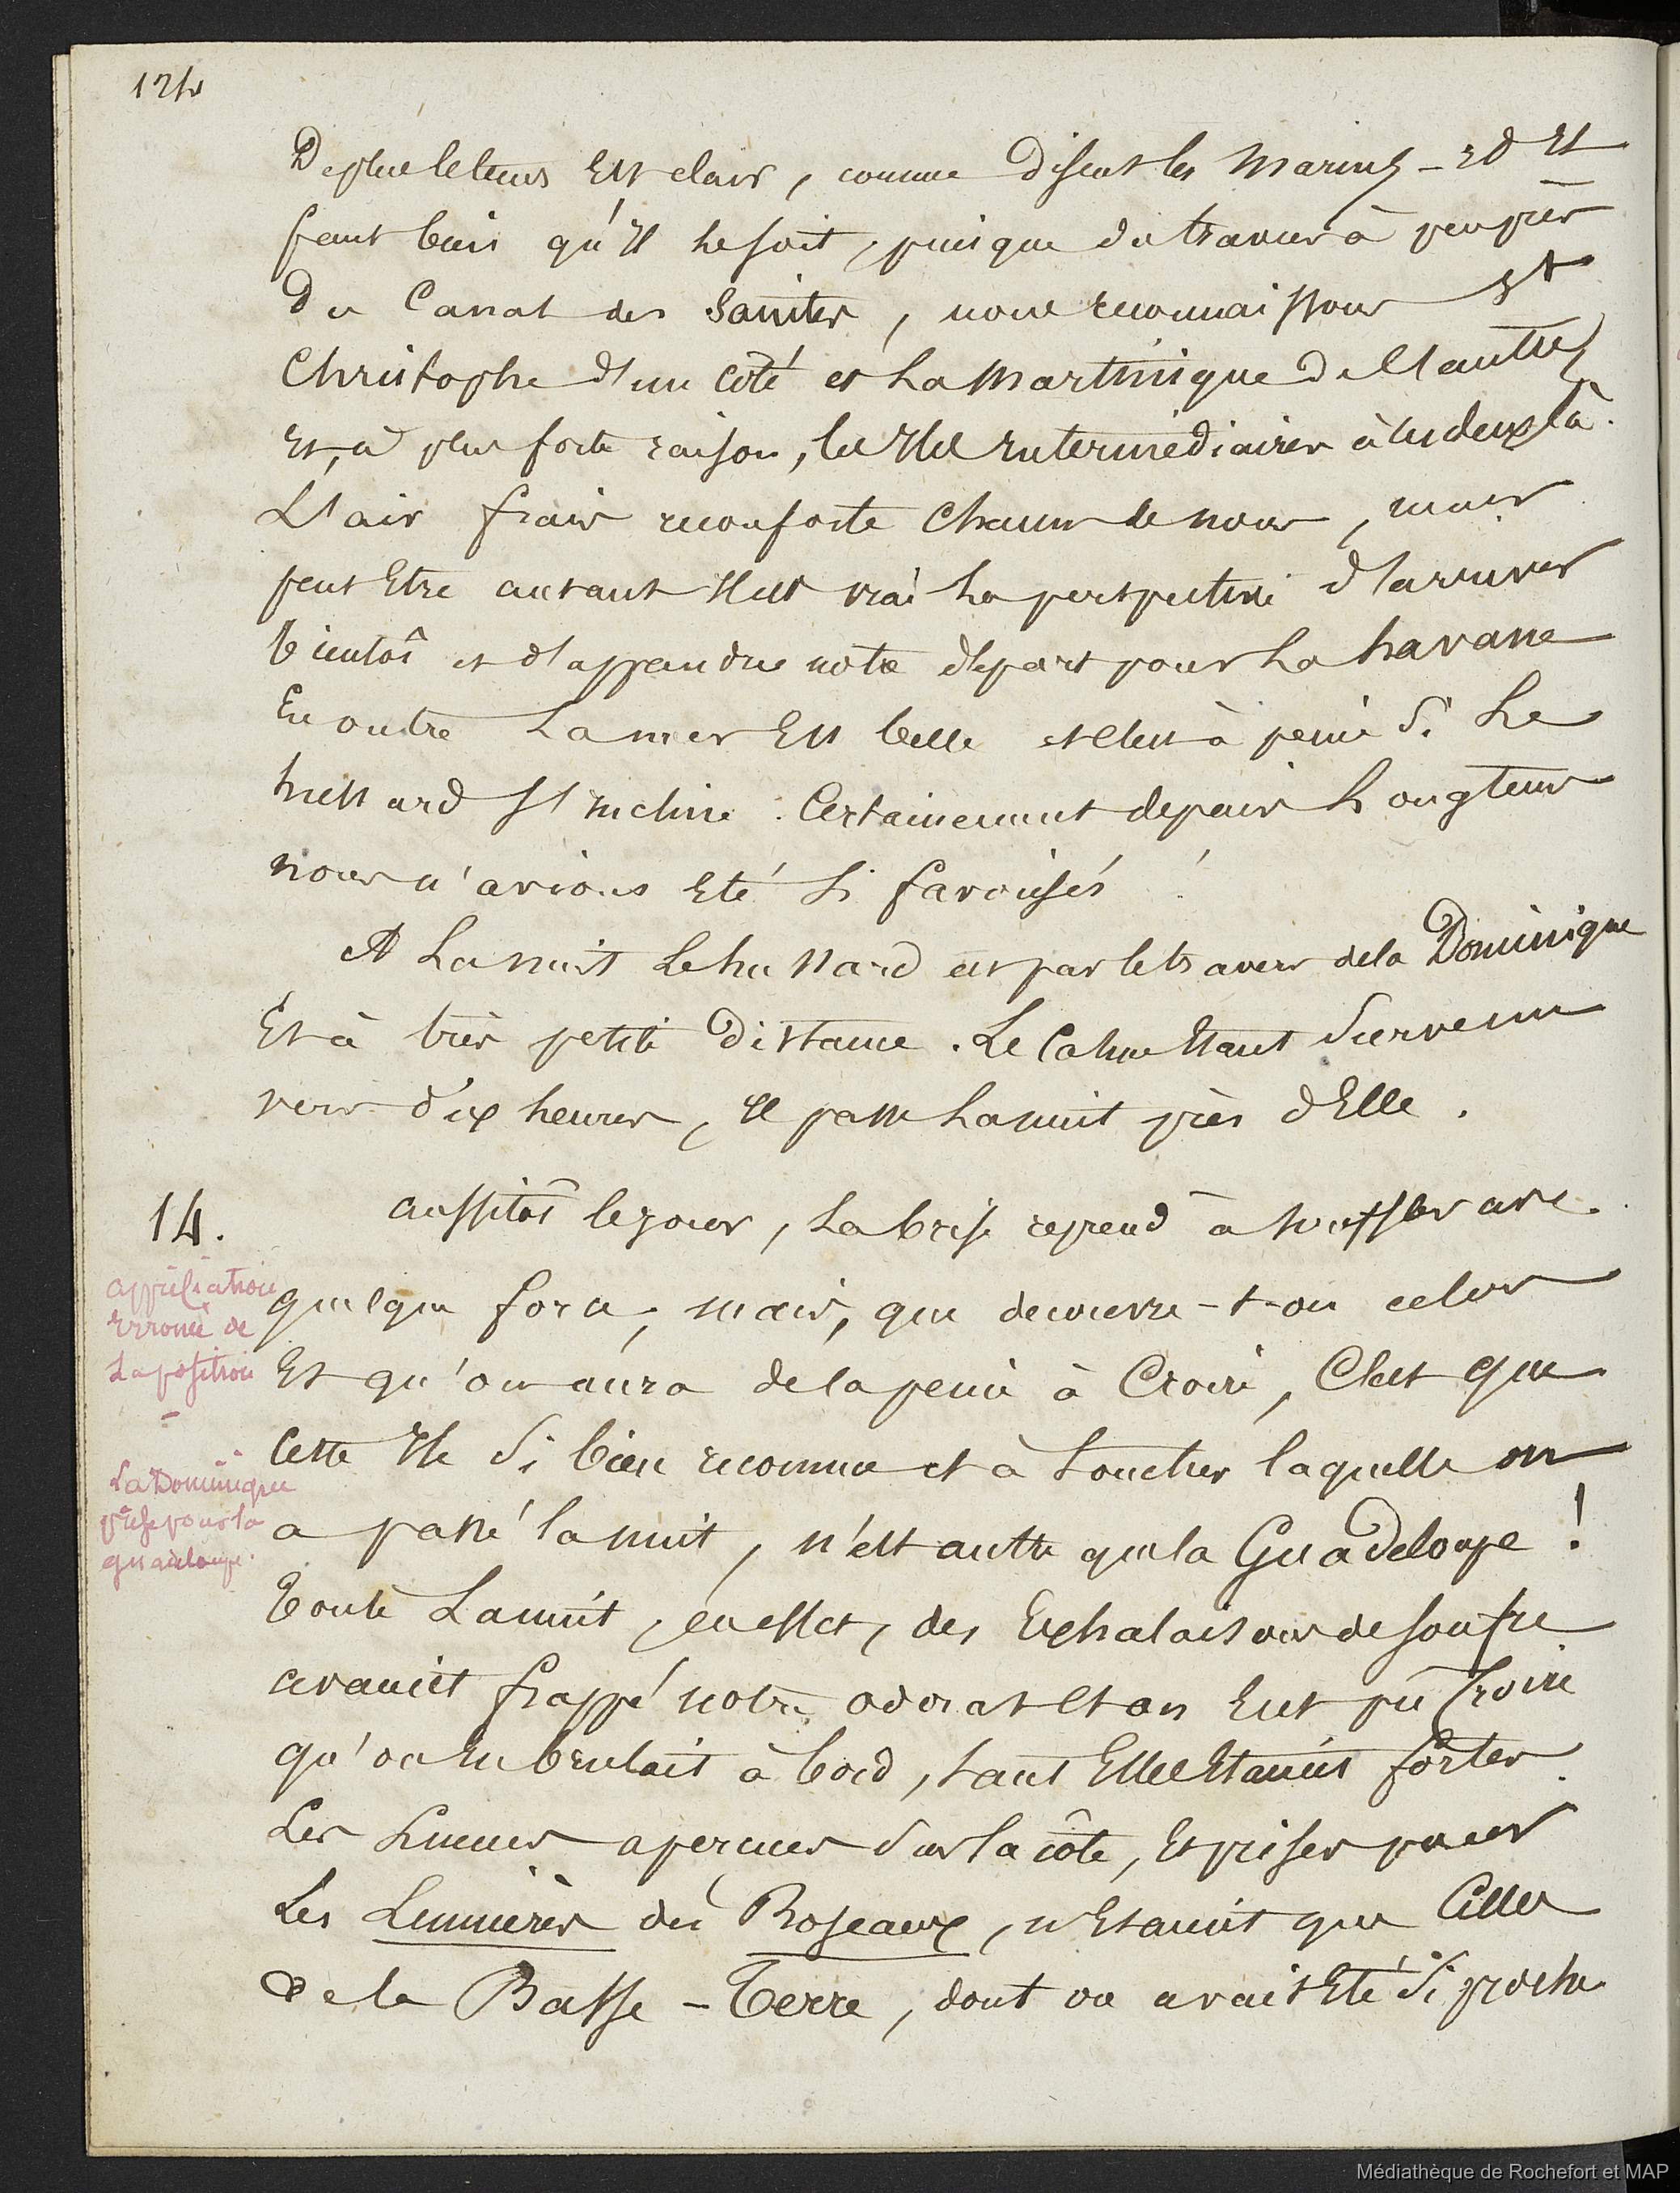 124
De plus le tems Est clair, comme disent les Marins – Et Il
faut bien qu'Il le soit, puisque du travers à peu près
Du Canal des Saintes, nous reconnaissons St
Christophe d'un côté et La Martinique de l'autre,
Et, à plus forte raison, les Iles Intermédiaires à ces deux là.
L'air frais reconforte Chacun de nous, mais
peut Etre autant Il est vrai La perspective d'arriver
bientôt et d'apprendre notre départ pour La havane
En outre La mer Est belle et c'est à peine Si Le
hussard s'Incline. Certainement depuis Longtems
nous n'avions Eté Si favorisés !
A La nuit Le hussard est par le travers de la Dominique
Et à très petite Distance. Le Calme Etant Survenu
vers dix heures, Il passe La nuit près d'Elle.
14.
aussitôt le jour, La brise reprend à souffler avec
quelque force, mais, que decouvre-t-on alors
Et qu'on aura de la peine à Croire, C'est que
Cette Ile Si bien reconnue et à toucher laquelle on
a passé la nuit, n'est autre que la Guadeloupe !
Toute La nuit, en effet, des Exhalaisons de soufre
avaient frappé notre odorat Et on Eut pû Croire
qu'on En brulait à bord, tant Elles Etaient fortes.
Les Lueurs apercues Sur la côte, Et prises pour
Les Lumières des Roseaux, n'Etaient que Celles
de la Basse-Terre, dont on avait Eté Si proche
appréciation
Erronée de
La position
–
La Dominique
prise pour la
guadeloupe.
Médiathèque de Rochefort et MAP